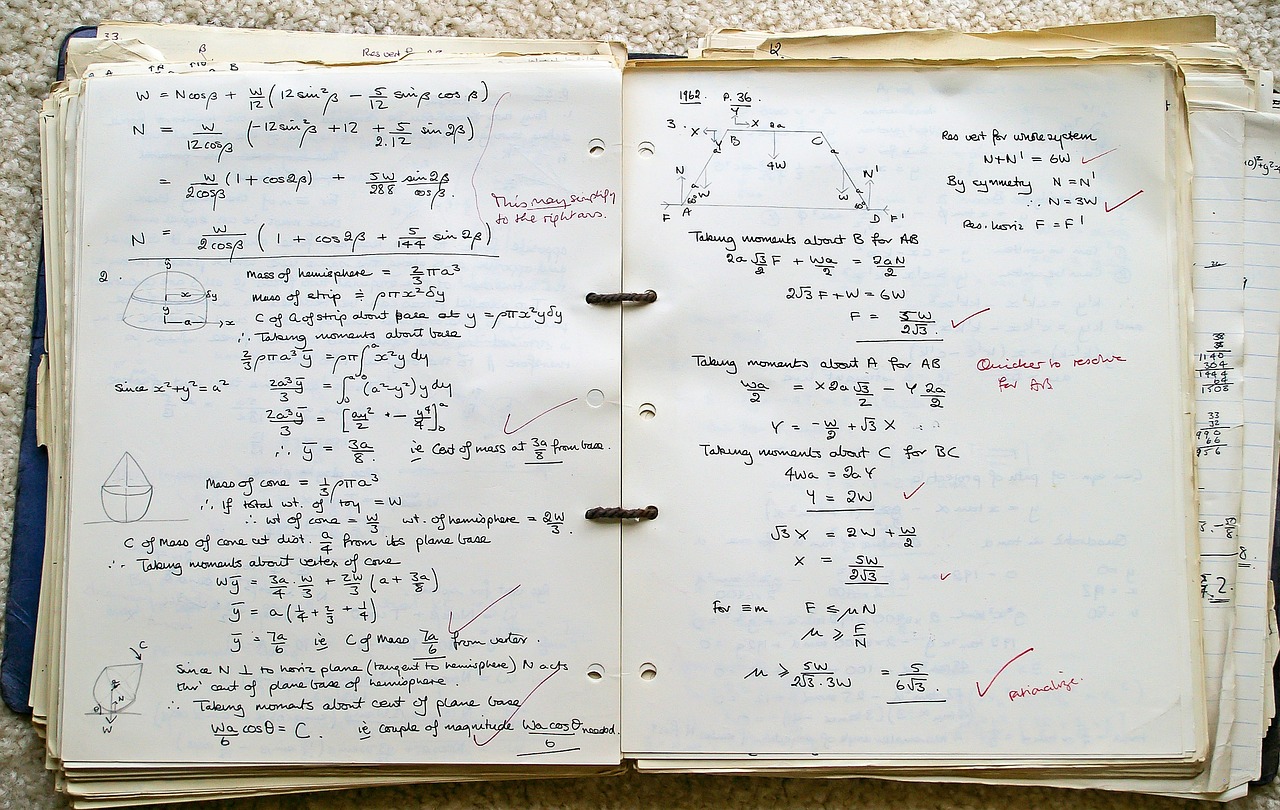 33.
β
Res vert
B
W = Ncosβ + W/12 (12sin²β − 5/12 sinβ cosβ)
N = W/12cosβ (−12sin²β + 12 + 5/2.12 sin2β)
= W/2cosβ (1 + cos2β) + 5W/288 sin2β/cosβ.
This may simplify
to the right ans.
N = W/2cosβ (1 + cos2β + 5/144 sin2β)
2.
y
x δy
y
a x
Mass of hemisphere = 2/3 πa³
Mass of strip ≑ ρπx²δy
C of G of strip about base at y = ρπx²yδy
∴ Taking moments about base
2/3 ρπa³ȳ = ρπ∫₀ᵃ x²y dy
Since x²+y²=a² 2a³ȳ/3 = ∫₀ᵃ (a²−y²)y dy
2a³ȳ/3 = [ay²/2 − y⁴/4]₀ᵃ
∴ ȳ = 3a/8 ie Cent of mass at 3a/8 from base.
Mass of cone = 1/3 ρπa³
∴ If total wt. of toy = W
∴ wt of cone = W/3 wt. of hemisphere = 2W/3.
C of Mass of cone at dist. a/4 from its plane base
∴ Taking moments about vertex of cone
Wȳ = 3a/4 · W/3 + 2W/3 (a + 3a/8)
ȳ = a(1/4 + 2/3 + 1/4)
ȳ = 7a/6 ie C of Mass 7a/6 from vertex.
C
N
θ
W
Since N ⊥ to horiz plane (tangent to hemisphere) N acts
thro' cent of plane base of hemisphere.
∴ Taking moments about cent of plane base
Wa/6 cosθ = C. ie couple of magnitude Wa cosθ/6 needed.
12.
1962. P.36.
3.
Y
X X 2a
Y B C
a 4W a
N N'
a W W a
60° 60°
F A D F'
Res vert for whole system
N+N' = 6W
By symmetry N = N'
∴ N = 3W
Res. horiz F = F'
Taking moments about B for AB
2a √3/2 F + Wa/2 = 2aN/2
2√3 F + W = 6W
F = 5W/2√3.
Taking moments about A for AB
Quicker to resolve
for AB
Wa/2 = X 2a √3/2 − Y 2a/2
Y = −W/2 + √3 X
Taking moments about C for BC
4Wa = 2aY
Y = 2W
√3 X = 2W + W/2
X = 5W/2√3
For ≡m F ≤ μN
μ ≥ F/N
μ ≥ 5W/2√3.3W = 5/6√3.
rationalize.
38
38
1140
304
1444
64
1508
33
32
990
66
956